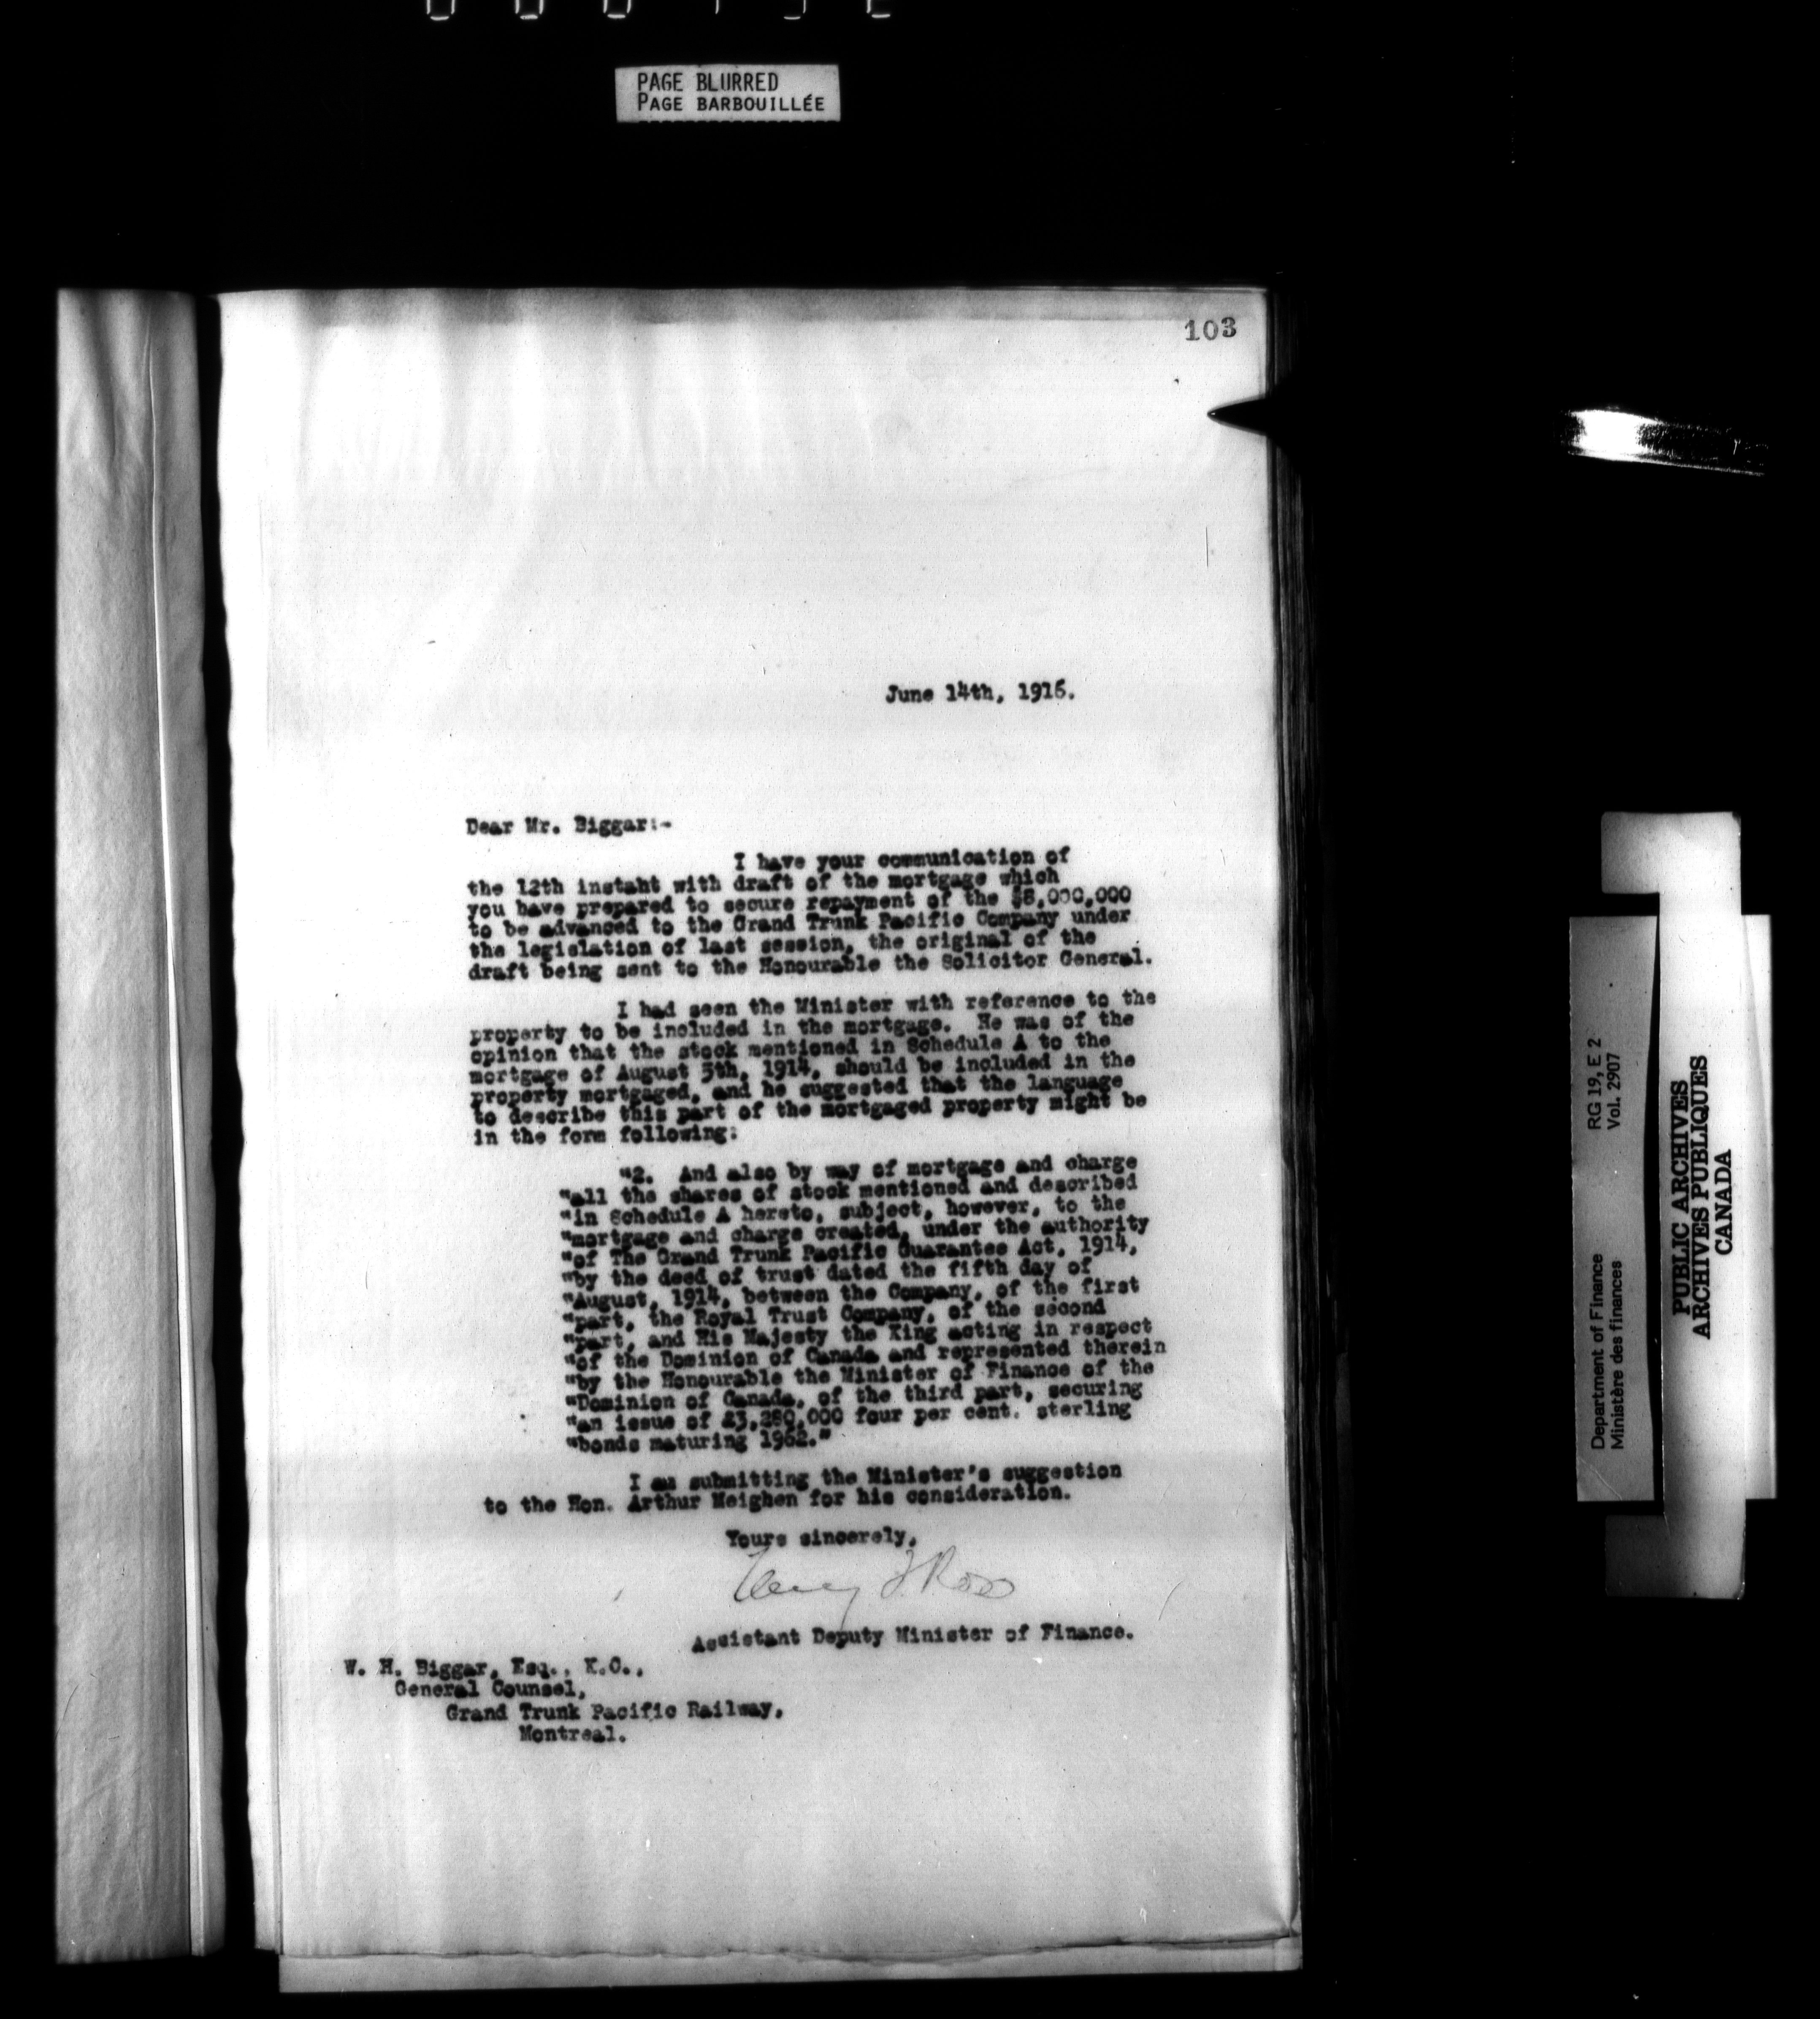 PAGE BLURRED
PAGE BARBOUILLÉE
103
June 14th, 1916.
Dear Mr. Biggar:-
I have your communication of
the 12th instant with draft of the mortgage which
you have prepared to secure repayment of the $8,000,000
to be advanced to the Grand Trunk Pacific Company under
the legislation of last session, the original of the
draft being sent to the Honourable the Solicitor General.
I had seen the Minister with reference to the
property to be included in the mortgage. He was of the
opinion that the stock mentioned in Schedule A to the
mortgage of August 5th, 1914, should be included in the
property mortgaged, and he suggested that the language
to describe this part of the mortgaged property might be
in the form following:
"2. And also by way of mortgage and charge
"all the shares of stock mentioned and described
"in Schedule A hereto, subject, however, to the
"mortgage and charge created, under the authority
"of The Grand Trunk Pacific Guarantee Act, 1914,
"by the deed of trust dated the fifth day of
"August, 1914, between the Company, of the first
"part, the Royal Trust Company, of the second
"part, and His Majesty the King acting in respect
"of the Dominion of Canada and represented therein
"by the Honourable the Minister of Finance of the
"Dominion of Canada, of the third part, securing
"an issue of £3,280,000 four per cent. sterling
"bonds maturing 1962."
I am submitting the Minister's suggestion
to the Hon. Arthur Meighen for his consideration.
Yours sincerely,
Henry T. Ross
Assistant Deputy Minister of Finance.
W. H. Biggar, Esq., K.C.,
General Counsel,
Grand Trunk Pacific Railway,
Montreal.
Department of Finance RG 19, E 2
Ministère des finances Vol. 2907
PUBLIC ARCHIVES
ARCHIVES PUBLIQUES
CANADA